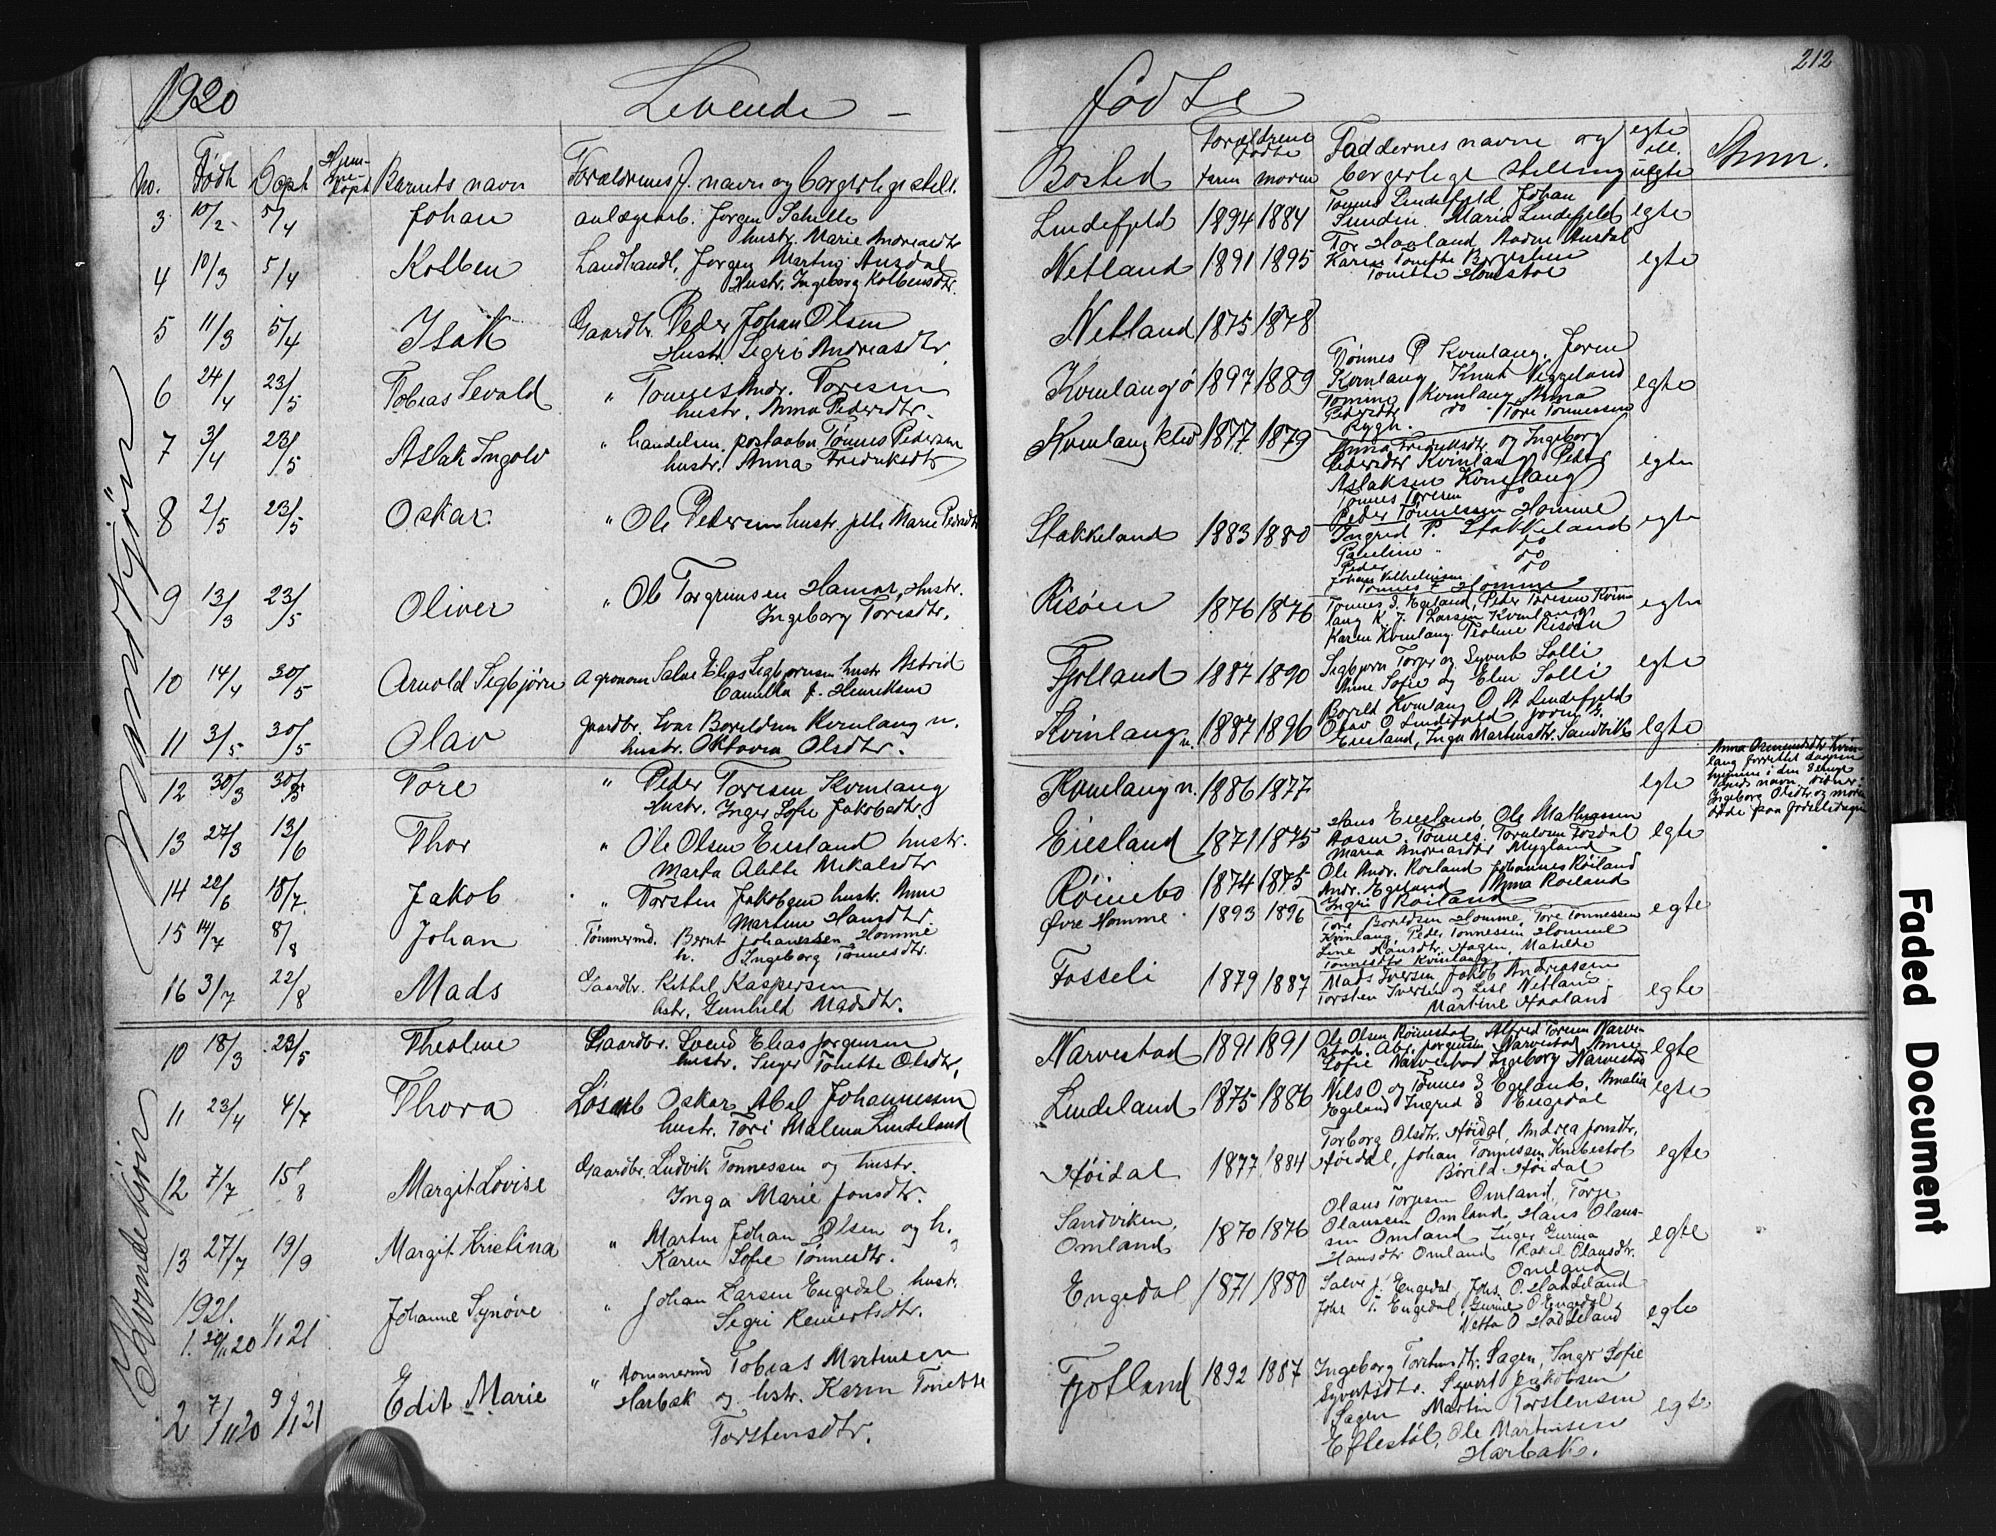 1920 Levende - fødte 212
No. Født Døpt Hjem-me-døpt Barnets navn Forældrenes f. navn og borgerlige still. Bosted Forældrene fødte faren moren Faddernes navne og borgerlige stilling egte ell. uegte Anm.
Mandkjøn
3 10/2 5/4 Johan anlægsarb. Jørgen Schelle Lindefjeld 1894 1884 Tønnes Lindefjeld, Johan egte
hustr. Marie Andreasdtr Sunden Maria Lindefjeld
4 10/3 5/4 Kolben Landhandl. Jørgen Martin Ausdal Netland 1891 1895 Tor Haaland, Aadne Ausdal egte
Hustr. Ingeborg Kolbensdtr. Karen Tomette
Tomette
5 11/3 5/4 Isak Gaardbr. Peder Johan Olsen Netland 1875 1878
Hustr. Segri Andreasdtr.
6 24/4 23/5 Tobias Sevald " Tønnes Andr. Toresen Kvinlangsjø 1897 1889 Tønnes P Kvinlang, Joren egte
hustr. Anna Pedersdtr. Kvinlang Knut Viggeland
Kvinlang Anna
Pedersdtr. do. Tore Tønnessen
7 3/4 23/5 Aslak Ingolv " handelsm. postaabn. Tønnes Pedersen Kvinlang 1877 1879 Rygh.
hustr. Anna Fredriksdtr Anna Fredriksdtr. og Ingeborg egte
Pedersdtr Kvinlang Peder
Aslaksen Kvinlang
Tønnes Toresen do
8 2/5 23/5 Oskar " Ole Pedersen hustr. Marie Pedersdtr Stakkeland 1883 1880 Peder Tønnessen Homme egte
Ingrid P. Stakkeland
Pauline " do
Peder do
Johan Vilhelmsen
Tønnes Homme
9 13/3 23/5 Oliver " Ole Torgrimsen Hamar, Hustr. Risøen 1876 1876 Tønnes S. Egeland, Peder Toresen Kvin- egte
Ingeborg Toresdtr. lang K. J. Larsen Kvinlang
Karen Kvinlang. Teoline Risøen
10 14/4 30/5 Arnold Sigbjørn agronom Salve Elias Sigbjørnsen hustr Astrid Fjotland 1887 1890 Sigbjørn Torjer og Syvert Solli egte
Camilla J. Henriksen Anne Sofie og Elen Solli
11 3/5 30/5 Olav gaardbr. Ivar Boreldsen Kvinlang n. Kvinlang n. 1887 1896 Borild Kvinlang O A Lindefjeld egte
hustr. Oktavia Olsdtr. Olav O Lindefjeld
Eiesland, Inga Martinsdtr. Sandviken
12 30/3 30/5 Tore " Peder Toresen Kvinlang Kvinlang n. 1886 1877 egte Anna Osmundsdtr Kvin-
Hustr. Inger Sofie Jakobsdtr. lang forrettet daapen
hjemme i den treenige
Guds navn. vidner:
Ingeborg Olsdtr. og moren
døde paa fødselsdagen
13 27/3 13/6 Thor " Ole Olsen Eiesland hustr. Eiesland 1871 1875 Hans Eiesland Ole Mathiassen egte
Marta Alette Mikalsdtr Aasen Tønnes
Maria Andreasdtr Mygland
14 22/6 18/7. Jakob " Torsten Jakobsen hustr. Anne Røinebo 1874 1875 Ole Andr. Røiland Johannes Røiland
Martine Hansdtr. Andr. Egeland Anna Røiland
Ingri Røiland egte
15 14/7 8/8 Johan Tømmermd. Bernt Johanssen Homme Øvre Homme 1893 1896 Tore Boreldsen Homme, Tore Tønnessen
h. Ingeborg Tønnesdtr. Kvinlang, Peder Tønnessen Homme
Line Hagen, Matilde
Tønnesdtr Kvinlang
16 3/7 22/8 Mads Gaardbr. Kittel Kaspersen Fosseli 1879 1887 Mads Iversen Jakob Andreassen egte
hstr. Gunhild Madsdtr. Torsten Iversen og Lise Netland
Martine Haaland
Kvindekjøn
10 18/3 23/5 Theoline Gaardbr. Svend Elias Jørgensen Narvestad 1891 1891 Ole Olsen Røinestad Alfred Toresen Narve- egte
hustr. Inger Tonette Olsdtr. stad. Abr. Jørgensen Narvestad Anne
Sofie Narvestad Ingeborg Narvestad
11 23/4 4/7 Thora Løsarb Oskar Abel Johannessen Lindeland 1875 1886 Nils O og Tønnes S Egeland. Amalia egte
hustr. Tori Malena Lindeland Egeland Ingrid S Engedal
12 7/7 15/8 Margit Lovise Gaardbr. Ludvik Tønnessen og hustr. Høidal 1877 1884 Torborg Olsdtr. Høidal, Andrea Jonsdtr. egte
Inga Marie Jonsdtr. Høidal, Johan Tønnessen Knibestøl
Borild Høidal
13 27/7 19/9 Margit Kristina " Martin Johan Olsen og h. Sandviken, Omland 1870 1876 Olaus Torjesen Omland, Torje egte
Karen Sofie Tønnesdtr. Olaussen Omland Hans Olaus-
sen Omland Inger Gurina
Hansdtr Omland Rakel Olausdtr.
Omland
1921.
1. 20/11 20 1/1 21 Johanne Synøve " Johan Larsen Engedal hustr. Engedal 1871 1880 Salve J. Engedal, Johs O. Haddeland egte
Segri Reinertsdtr. Johs T. Engedal, Gurine O Engedal
Netta O Haddeland
2 7/11 20 9/1 21 Edit Marie " Tømmermd Tobias Martinsen Fjotland 1892 1887 Ingeborg Torstensdtr. Sagen, Inger Sofie egte
Harbak og hstr. Karen Tonette Syvertsdtr. Syvert Jakobsen
Torstensdtr. Sagen Martin Torstensen
Eftestøl, Ole Martinsen
Harbak.
Faded Document